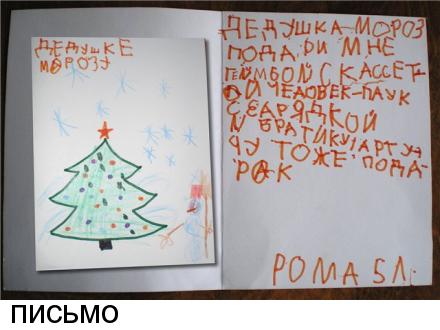 ДЕДУШКЕ
МОРОЗУ
ДЕДУШКА МОРОЗ
ПОДАРИ МНЕ
ГЕЙМБОЙ С КАССЕТ-
ОЙ ЧЕЛОВЕК-ПАУК
С ЗАРЯДКОЙ
И БРАТИКУ АРТУ
РУ ТОЖЕ ПОДА-
РАК
РОМА 5 Л.
ПИСЬМО